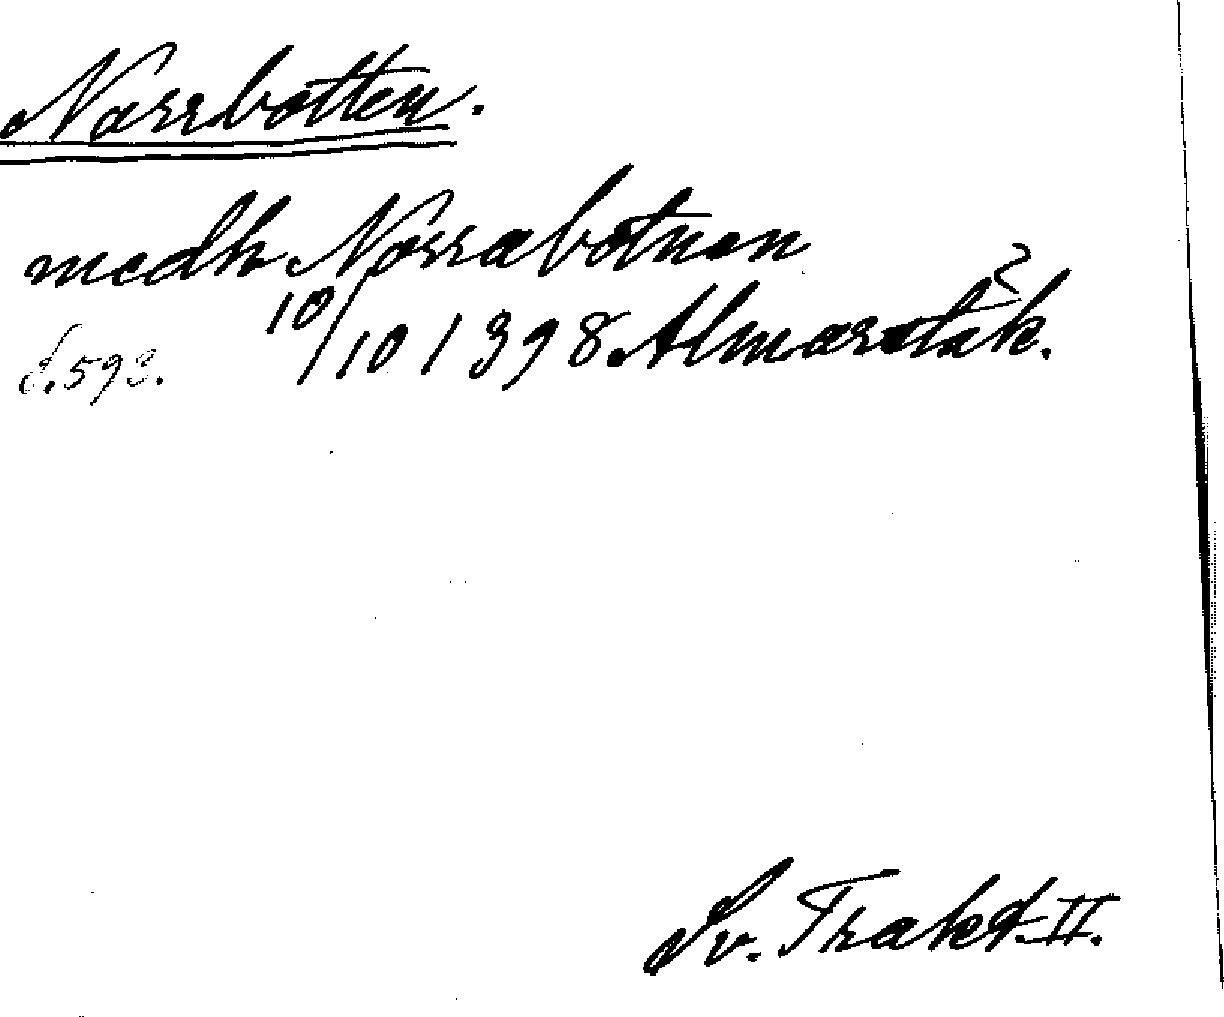 Norrbotten.
medh Norrabotnen
10/10 1398 Almarstäk.
s. 593.
Sv. Trakt. II.